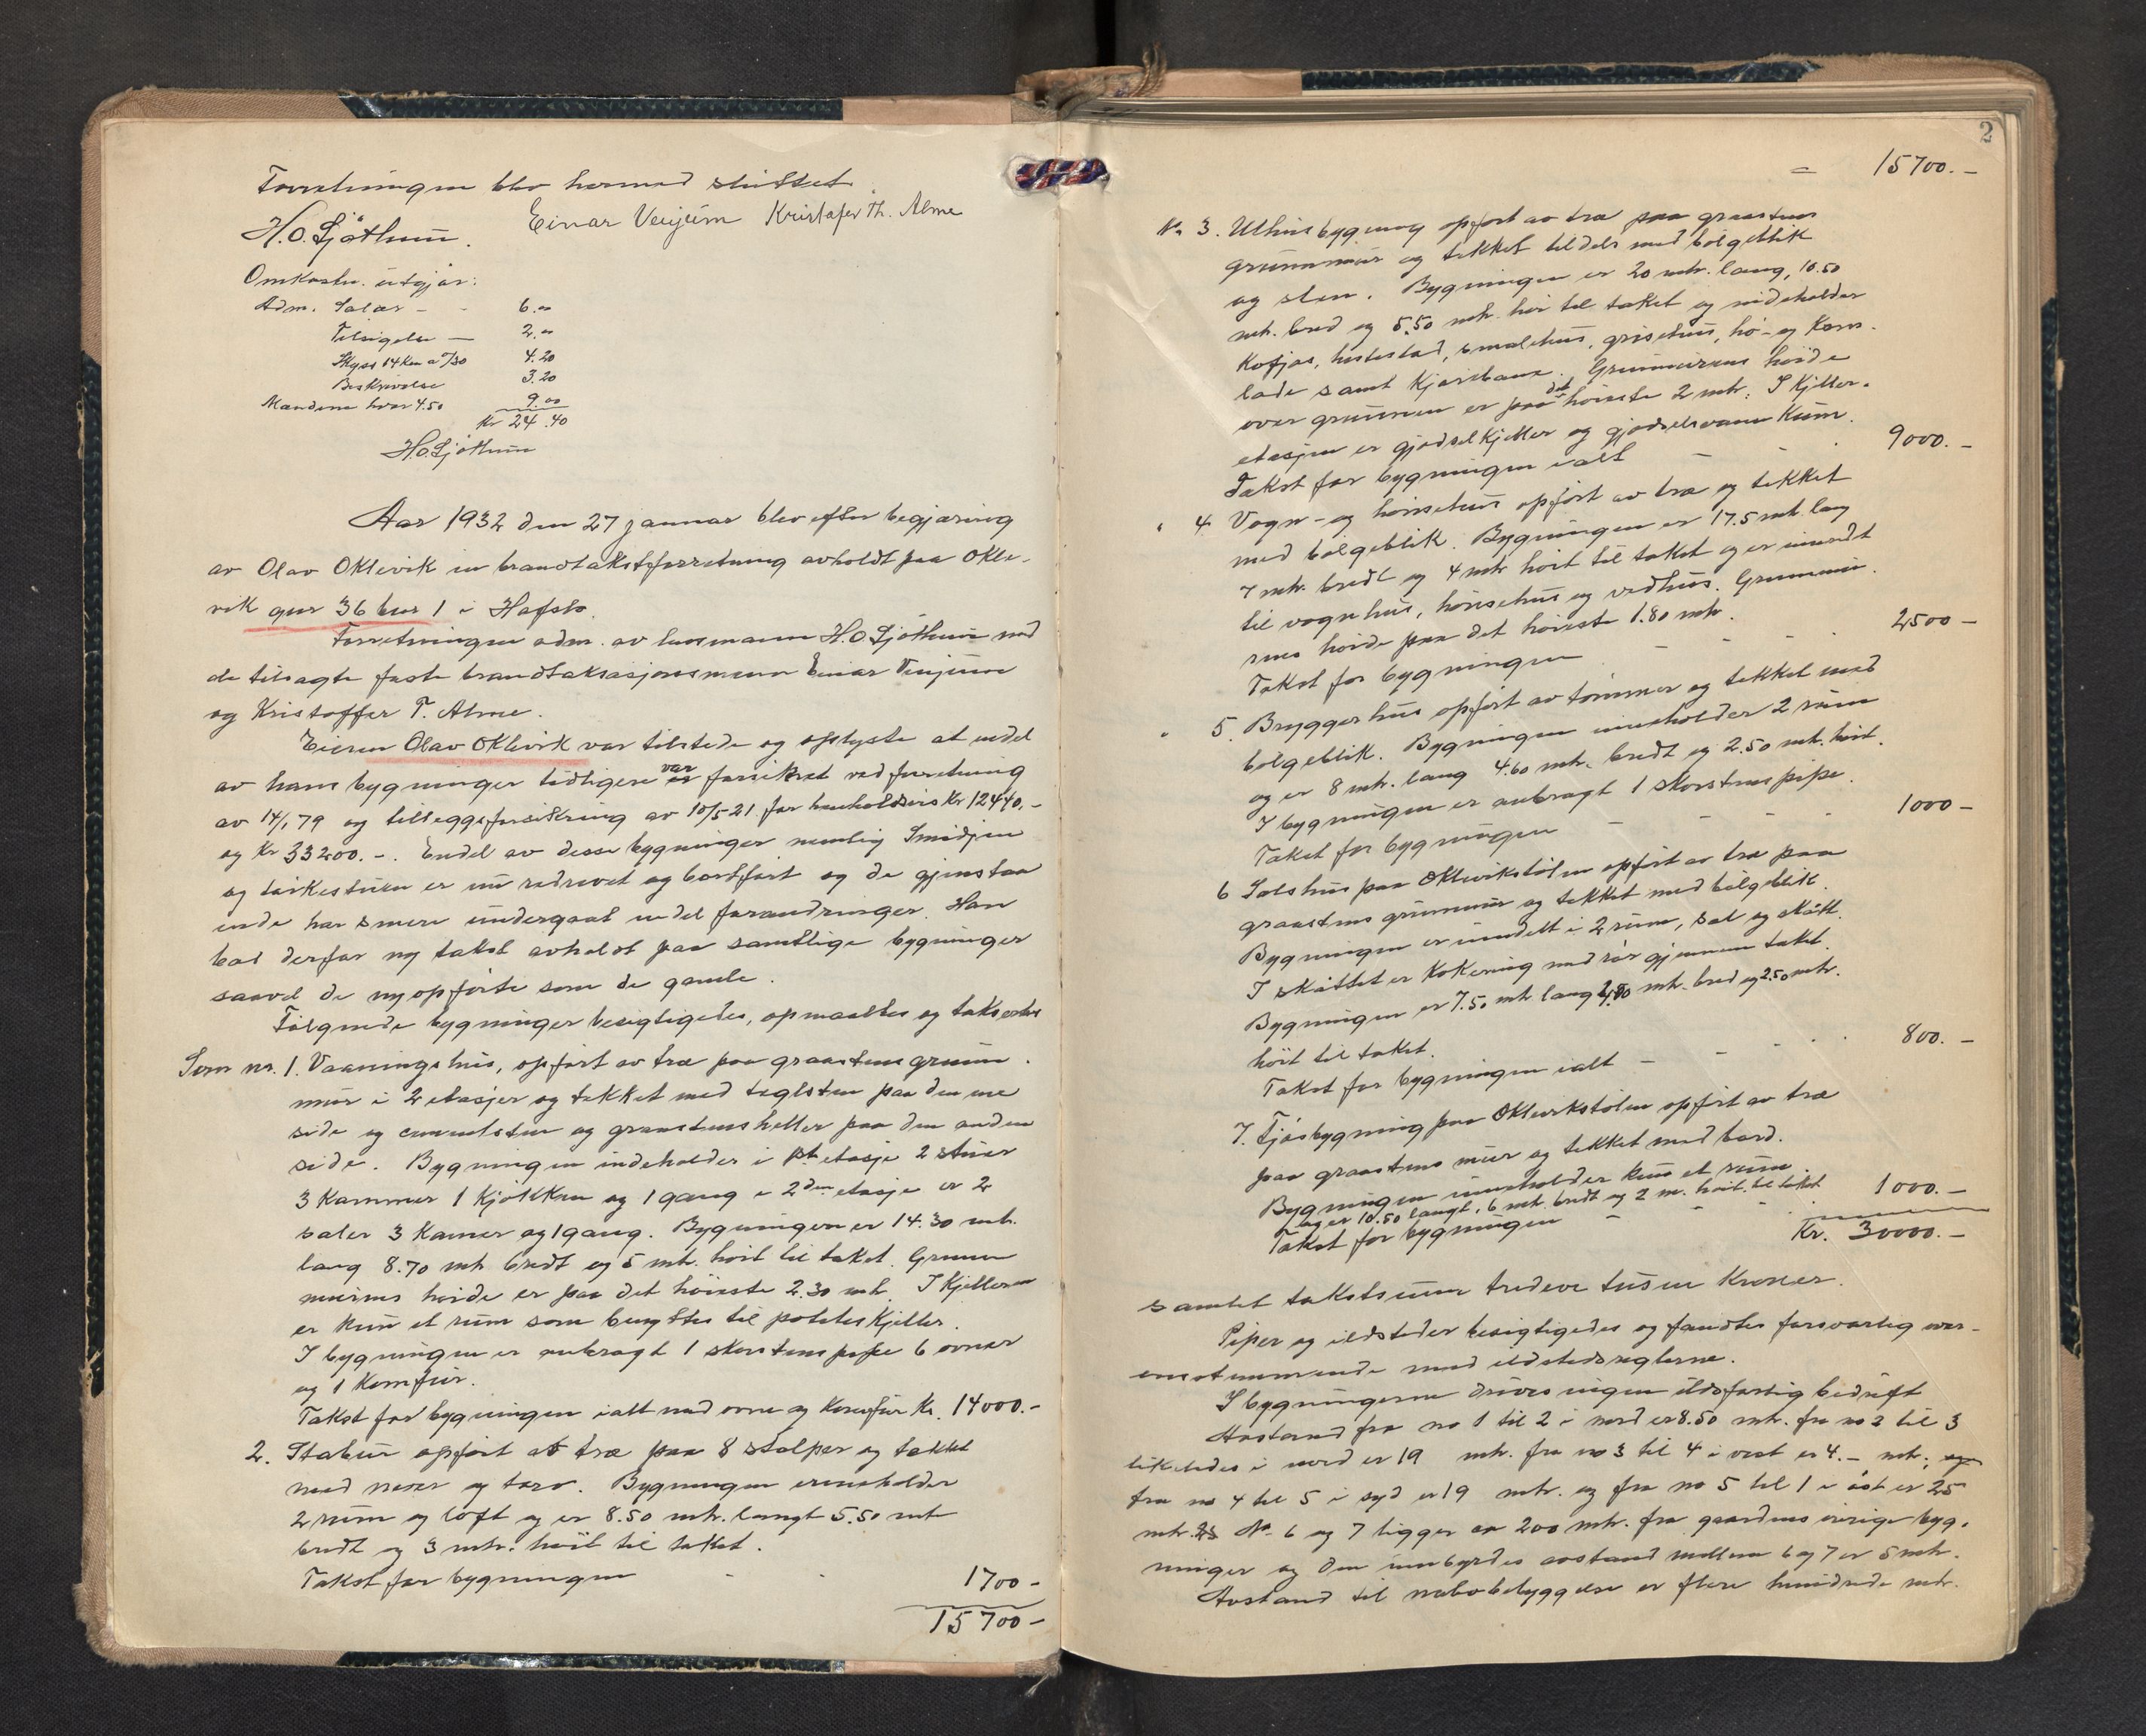 Forretningen blev hermed sluttet.
H.O. Sjøthun. Einar Venjum Kristofer Th. Alme
Omkostn. utgjør:
Adm. Salær - - 6.00
Tilsigelse - 2.00
Skyss 14 km a 0/30 4.20
Beskrivelse 3.20
Mændene hver 4.50 9.00
Kr 24.40
H.O. Sjøthun
Aar 1932 den 27 januar blev efter begjæring
av Olav Oklevik en brandtakstforretning avholdt paa Okle-
vik gnr 36 bnr 1 i Hafslo.
Forretningen adm. av lensmann H.O. Sjøthun med
de tilsagte faste brandtaksasjonsmenn Einar Venjum
og Kristoffer T. Alme.
Eieren Olav Oklevik var tilstede og oplyste at endel
av hans bygninger tidligere var forsikret ved forretning
av 14/1 79 og tilleggsforsikring av 10/5 21 for henholdsvis Kr 12440.-
og Kr 33200.-. Endel av desse bygninger nemlig Smidjen
og tørkestuen er nu nedrevet og bortført og de gjenstaa
ende har smere undergaat endel forandringer. Han
bad derfor ny takst avholdt paa samtlige bygninger
saavel de nyopførte som de gamle.
Følgende bygninger besigtigedes, opmaaltes og taksertes
Som nr. 1. Vaaningshus, opført av træ paa graastensgrunn-
mur i 2 etasjer og tekket med taglsten paa den ene
side og cementsten og graastensheller paa den anden
side. Bygningen indeholder i 1ste etasje 2 stuer
3 Kammer 1 kjøkken og 1 gang i 2den etasje er 2
saler 3 Kamer og 1 gang. Bygningen er 14.30 mtr.
lang 8.70 mtr bredt og 5 mtr. høit til taket. Grunn
murens høide er paa det høieste 2.30 mtr. I Kjelleren
er kun et rum som benyttes til potetes Kjeller.
I bygningen er anbragt 1 skorstenspipe 6 ovner
og 1 Komfur.
Takst for bygningen ialt med ovne og Komfur Kr. 14000.-
2. Stabur opført av træ paa 8 stolper og tekket
med never og torv. Bygningen inneholder
2 rum og loft og er 8.50 mtr. langt 5.50 mtr
bredt og 3 mtr. høit til taket.
Takst for bygningen - - 1700-
15700-
2
= 15700.-
No 3. Uthusbygning opført av træ paa graastens
grunnmur og tekket tildels med bølgeblik
og sten. Bygningen er 20 mtr. lang, 10.50
mtr. bred og 5.50 mtr. høi til taket og indeholder
Kofjøs, hestestad, smalehus, grisehus, hø- og Korn-
lade samt Kjørebane. Grunnmurens høide
over grunnen er paa det høieste 2 mtr. I Kjeller-
etasjen er gjødselkjeller og gjødselsvann Kum.
Takst for bygningen ialt - - - 9000.-
" 4. Vogn- og hønsehus opført av træ og tekket
med bølgeblik. Bygningen er 17.5 mtr. lang
7 mtr. bredt og 4 mtr høit til taket og er innredt
til vognhus, hønsehus og vedhus. Grunnmu-
rens høide paa det høieste 1.80 mtr.
Takst for bygningen - - - 2500-
" 5. Bryggerhus opført av tømmer og tekket med
bølgeblik. Bygningen inneholder 2 rum
og er 8 mtr. lang 4.60 mtr. bredt og 2.50 mtr. høit.
I bygningen er anbragt 1 skorstenspipe.
Takst for bygningen - - - - 1000-
6 Selshus paa Oklevikstølen opført av træ paa
graastens grunnmur og tekket med bølgeblik.
Bygningen er inndelt i 2 rum, sel og skått.
I skåttet er kokeovn med rør gjennem taket.
Bygningen er 7.50 mtr lang mtr. bred og 2.50 mtr.
høit til taket.
Takst for bygningen ialt - - - - 800.-
7. Fjøsbygning paa Oklevikstølen opført av træ
paa graastens mur og tekket med bord.
Bygningen inneholder kun et rum.
og er 10.50 langt, 6 mtr. bredt og 2 m. høit til taket
Takst for bygningen - - - 1000.-
Kr. 30000.-
samlet takstsum tredeve tusen Kroner.
Piper og ildsteder besigtigedes og fandtes forsvarlig over-
ensstemmende med ildstedsreglerne.
I bygningerne drives ingen ildsfarlig bedrift
Avstand fra no 1 til 2 i nord er 8.50 mtr. fra no 2 til 3
likeledes i nord er 19 mtr. fra no 3 til 4 i vest er 4.- mtr. og
fra no 4 til 5 i syd er 19 mtr. og fra no 5 til 1 i øst er 25
mtr. No 6 og 7 ligger ca 200 mtr. fra gaardens øvrige byg-
ninger og den innbyrdes avstand mellem 6 og 7 er 5 mtr.
Avstand til nabobebyggelse er flere hundrede mtr.